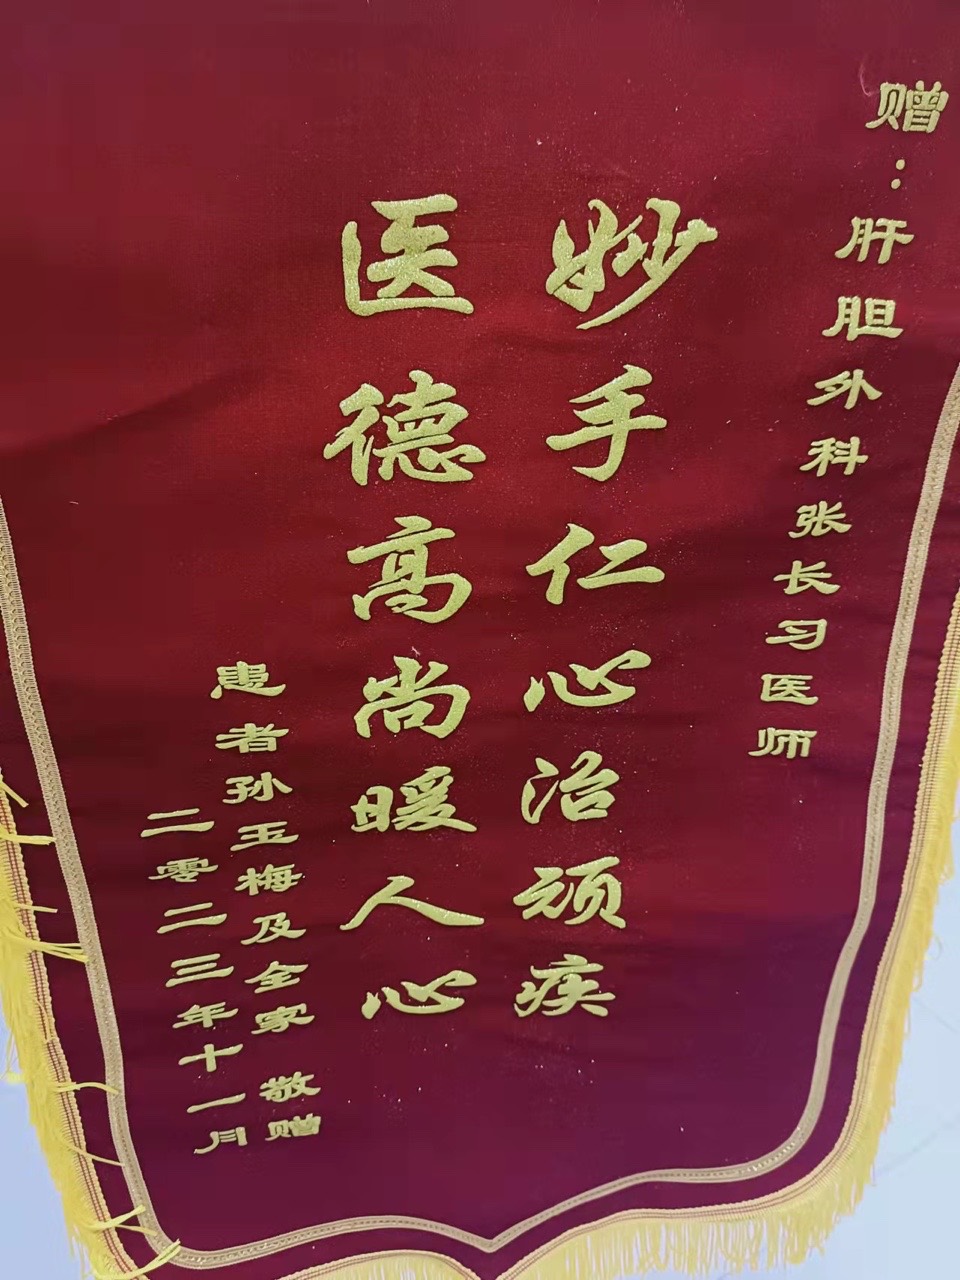 赠：肝胆外科张长习医师
妙手仁心治顽疾
医德高尚暖人心
患者孙玉梅及全家 敬赠
二零二三年十一月